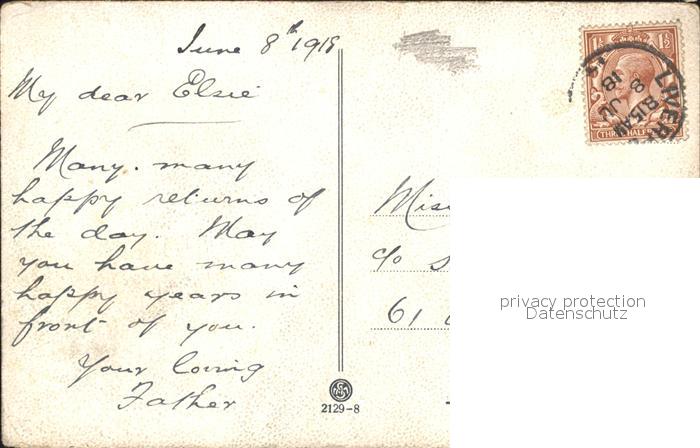 June 8th 1918
My dear Elsie
Many, many
happy returns of
the day. May
you have many
happy years in
front of you.
Your loving
Father
2129-8
1½ 1½
LIVERP
8.15 AM
8 JU
18
THREE HALF
Miss
c/o S
61
privacy protection
Datenschutz